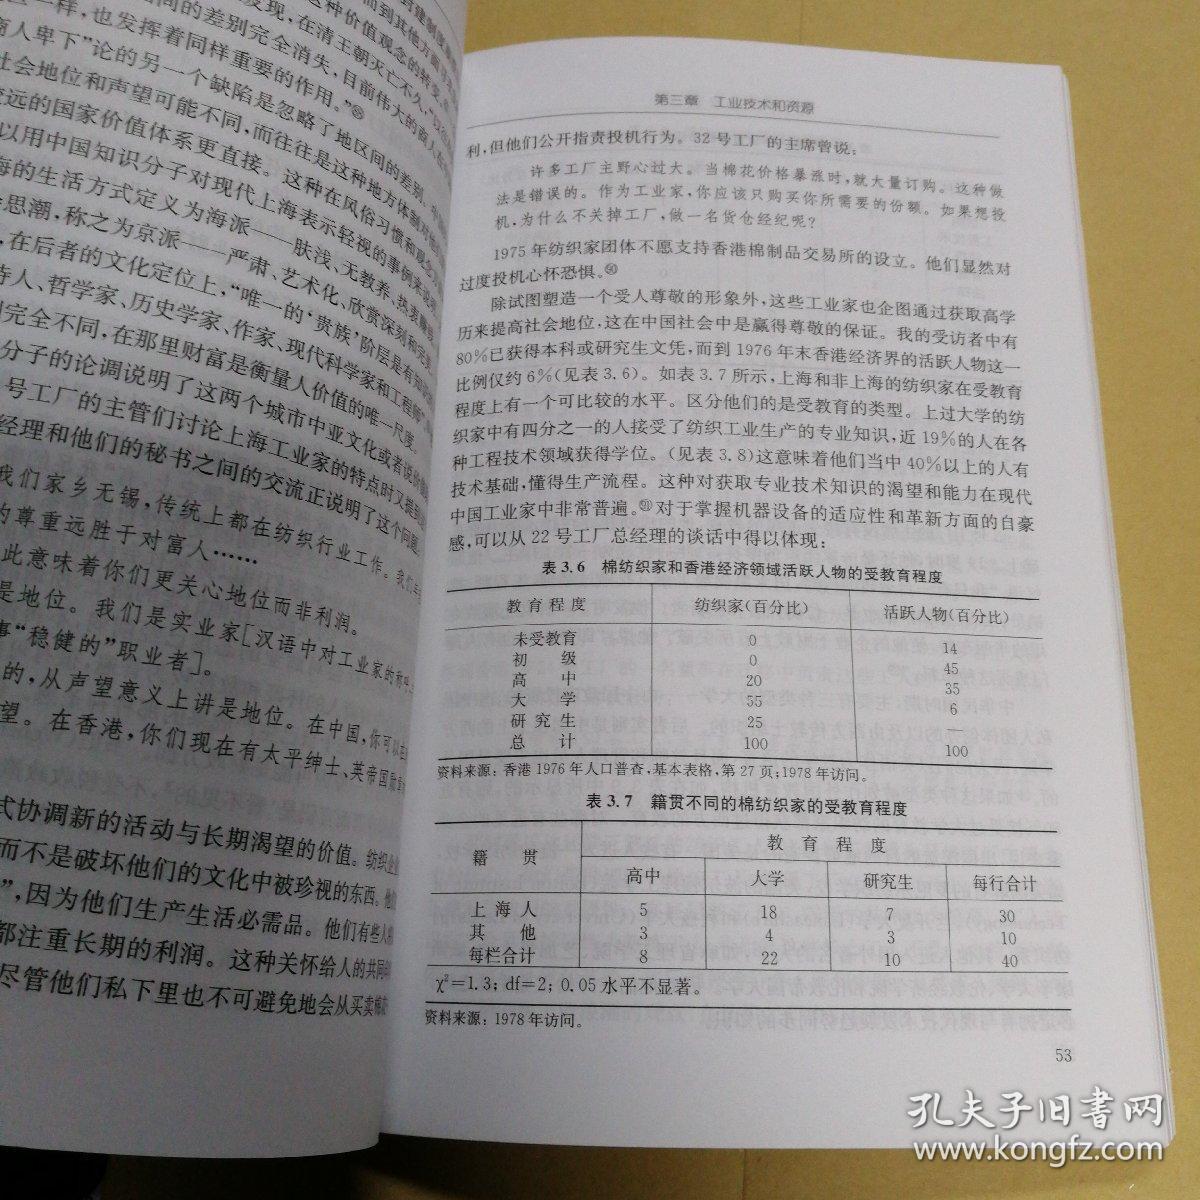 一样，也发挥着同样重要的作用。”
商人卑下”论的另一个缺陷是忽略了地区间的差别。
社会地位和声望可能不同，而往往是这种地方体制对他
遥远的国家价值体系更直接。这种在风俗习惯和观念
以用中国知识分子对现代上海表示轻视的事例来说
海的生活方式定义为海派——肤浅、无教养、热衷
思潮，称之为京派——严肃、艺术化、欣赏深刻和完
，在后者的文化定位上，“唯一的‘贵族’阶层是有
诗人、哲学家、历史学家、作家、现代科学家和工程师”
完全不同，在那里财富是衡量人价值的唯一尺度。
分子的论调说明了这两个城市中亚文化或者说价值
号工厂的主管们讨论上海工业家的特点时又提到
经理和他们的秘书之间的交流正说明了这个问题。
我们家乡无锡，传统上都在纺织行业工作。我们
的尊重远胜于对富人……
此意味着你们更关心地位而非利润。
是地位。我们是实业家[汉语中对工业家的称呼
事“稳健的”职业者]。
的，从声望意义上讲是地位。在中国，你可以
望。在香港，你们现在有太平绅士、英帝国勋
式协调新的活动与长期渴望的价值。纺织
而不是破坏他们的文化中被珍视的东西。他
”，因为他们生产生活必需品。他们有些人
都注重长期的利润。这种关怀给人的共同
尽管他们私下里也不可避免地会从买卖棉
第三章　工业技术和资源
利，但他们公开指责投机行为。32号工厂的主席曾说：
许多工厂主野心过大。当棉花价格暴涨时，就大量订购。这种做
法是错误的。作为工业家，你应该只购买你所需要的份额。如果想投
机，为什么不关掉工厂，做一名货仓经纪呢？
1975年纺织家团体不愿支持香港棉制品交易所的设立。他们显然对
过度投机心怀恐惧。
除试图塑造一个受人尊敬的形象外，这些工业家也企图通过获取高学
历来提高社会地位，这在中国社会中是赢得尊敬的保证。我的受访者中有
80%已获得本科或研究生文凭，而到1976年末香港经济界的活跃人物这一
比例仅约6%(见表3.6)。如表3.7所示，上海和非上海的纺织家在受教育
程度上有一个可比较的水平。区分他们的是受教育的类型。上过大学的纺
织家中有四分之一的人接受了纺织工业生产的专业知识，近19%的人在各
种工程技术领域获得学位。(见表3.8)这意味着他们当中40%以上的人有
技术基础，懂得生产流程。这种对获取专业技术知识的渴望和能力在现代
中国工业家中非常普遍。对于掌握机器设备的适应性和革新方面的自豪
感，可以从22号工厂总经理的谈话中得以体现：
表3.6　棉纺织家和香港经济领域活跃人物的受教育程度
教育程度　纺织家(百分比)　活跃人物(百分比)
未受教育　0　14
初　级　0　45
高　中　20　35
大　学　55　6
研究生　25
总　计　100　100
资料来源：香港1976年人口普查，基本表格，第27页；1978年访问。
表3.7　籍贯不同的棉纺织家的受教育程度
籍　贯　教　育　程　度
高中　大学　研究生　每行合计
上海人　5　18　7　30
其　他　3　4　3　10
每栏合计　8　22　10　40
χ²=1.3；df=2；0.05水平不显著。
资料来源：1978年访问。
53
孔夫子旧书网
www.kongfz.com